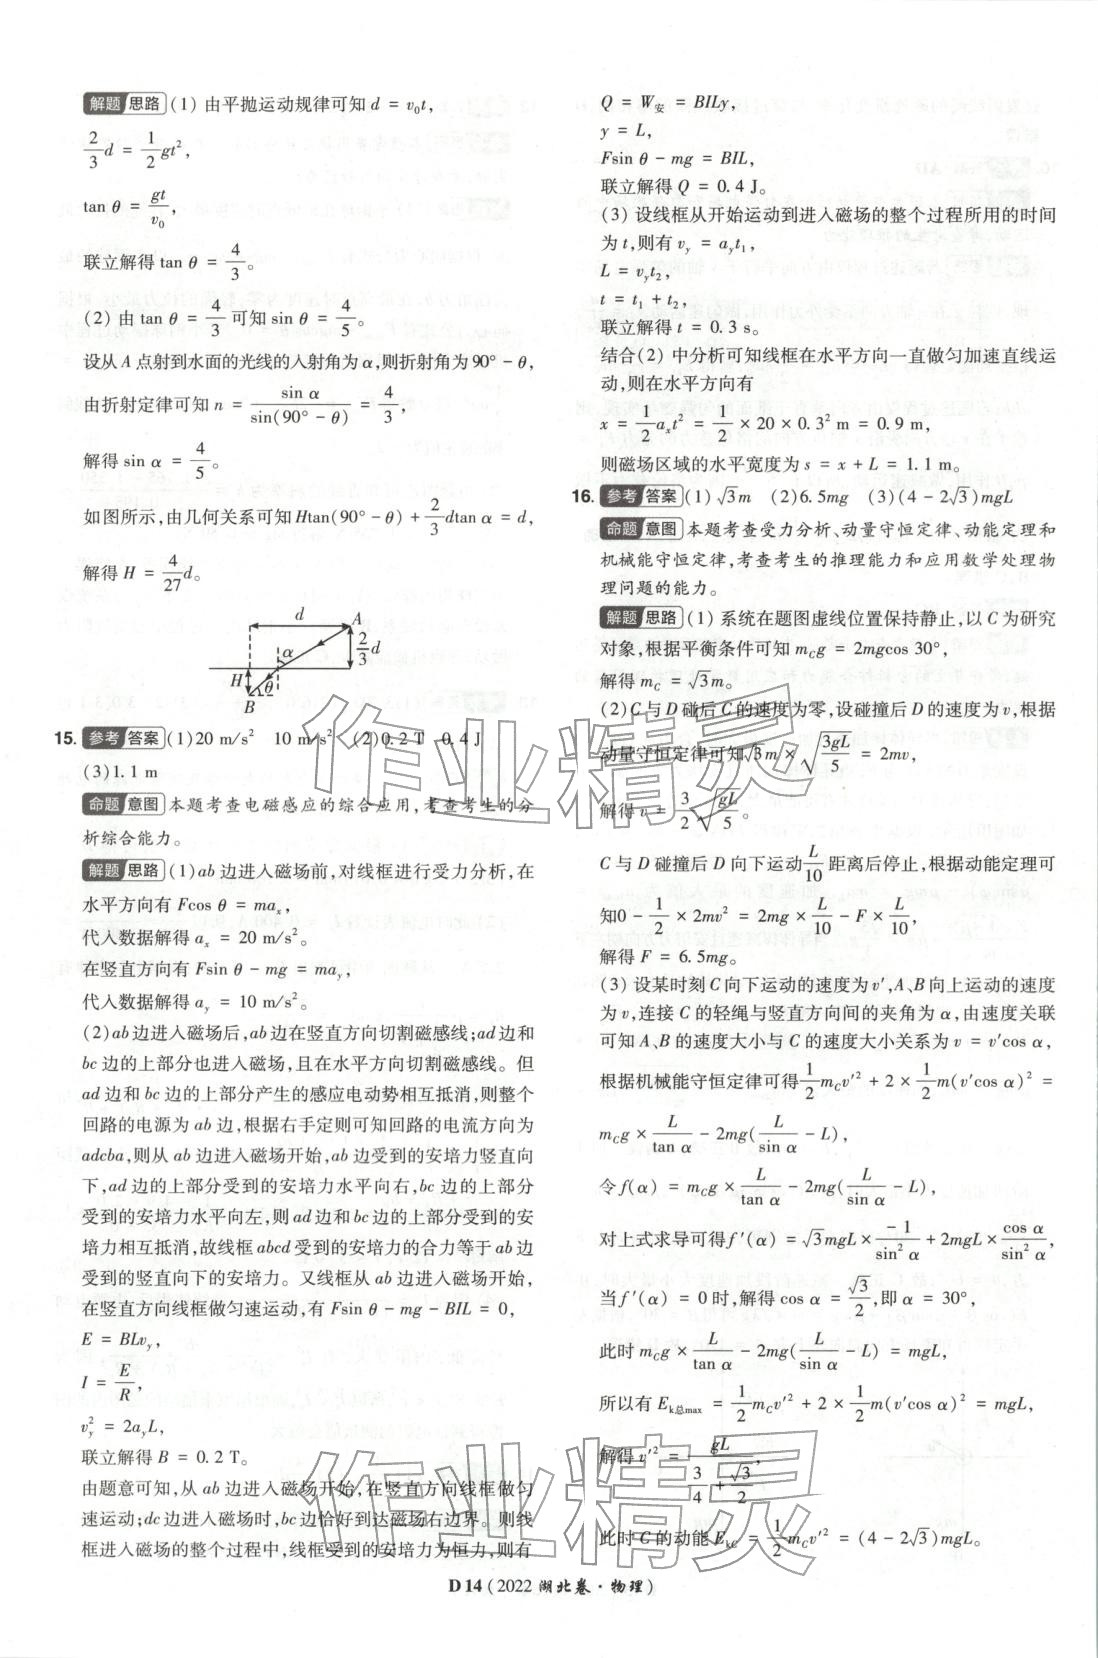 解题 思路 (1) 由平抛运动规律可知 d = v₀t,
2/3 d = 1/2 gt²,
tan θ = gt/v₀,
联立解得 tan θ = 4/3。
(2) 由 tan θ = 4/3 可知 sin θ = 4/5。
设从 A 点射到水面的光线的入射角为 α,则折射角为90° − θ,
由折射定律可知 n = sin α/sin(90° − θ) = 4/3,
解得 sin α = 4/5。
如图所示,由几何关系可知 Htan(90° − θ) + 2/3 dtan α = d,
解得 H = 4/27 d。
d
A
α
2/3 d
H
θ
B
15. 参考 答案 (1)20 m/s² 10 m/s² (2)0.2 T 0.4 J
(3)1.1 m
命题 意图 本题考查电磁感应的综合应用,考查考生的分
析综合能力。
解题 思路 (1)ab 边进入磁场前,对线框进行受力分析,在
水平方向有 Fcos θ = maₓ,
代入数据解得 aₓ = 20 m/s²。
在竖直方向有 Fsin θ − mg = ma_y,
代入数据解得 a_y = 10 m/s²。
(2)ab 边进入磁场后,ab 边在竖直方向切割磁感线;ad 边和
bc 边的上部分也进入磁场,且在水平方向切割磁感线。但
ad 边和 bc 边的上部分产生的感应电动势相互抵消,则整个
回路的电源为 ab 边,根据右手定则可知回路的电流方向为
adcba,则从 ab 边进入磁场开始,ab 边受到的安培力竖直向
下,ad 边的上部分受到的安培力水平向右,bc 边的上部分
受到的安培力水平向左,则 ad 边和 bc 边的上部分受到的安
培力相互抵消,故线框 abcd 受到的安培力的合力等于 ab 边
受到的竖直向下的安培力。又线框从 ab 边进入磁场开始,
在竖直方向线框做匀速运动,有 Fsin θ − mg − BIL = 0,
E = BLv_y,
I = E/R,
v_y² = 2a_yL,
联立解得 B = 0.2 T。
由题意可知,从 ab 边进入磁场开始,在竖直方向线框做匀
速运动;dc 边进入磁场时,bc 边恰好到达磁场右边界。则线
框进入磁场的整个过程中,线框受到的安培力为恒力,则有
Q = W安 = BILy,
y = L,
Fsin θ − mg = BIL,
联立解得 Q = 0.4 J。
(3) 设线框从开始运动到进入磁场的整个过程所用的时间
为 t,则有 v_y = a_yt₁,
L = v_yt₂,
t = t₁ + t₂,
联立解得 t = 0.3 s。
结合(2) 中分析可知线框在水平方向一直做匀加速直线运
动,则在水平方向有
x = 1/2 aₓt² = 1/2 × 20 × 0.3² m = 0.9 m,
则磁场区域的水平宽度为 s = x + L = 1.1 m。
16. 参考 答案 (1) √3 m (2)6.5mg (3)(4 − 2√3)mgL
命题 意图 本题考查受力分析、动量守恒定律、动能定理和
机械能守恒定律,考查考生的推理能力和应用数学处理物
理问题的能力。
解题 思路 (1) 系统在题图虚线位置保持静止,以 C 为研究
对象,根据平衡条件可知 m_Cg = 2mgcos 30°,
解得 m_C = √3 m。
(2)C 与 D 碰后 C 的速度为零,设碰撞后 D 的速度为 v,根据
动量守恒定律可知√3 m × √(3gL/5) = 2mv,
解得 v = 3/2 √(gL/5),
C 与 D 碰撞后 D 向下运动 L/10 距离后停止,根据动能定理可
知0 − 1/2 × 2mv² = 2mg × L/10 − F × L/10,
解得 F = 6.5mg。
(3) 设某时刻 C 向下运动的速度为 v′,A、B 向上运动的速度
为 v,连接 C 的轻绳与竖直方向间的夹角为 α,由速度关联
可知 A、B 的速度大小与 C 的速度大小关系为 v = v′cos α,
根据机械能守恒定律可得 1/2 m_Cv′² + 2 × 1/2 m(v′cos α)² =
m_Cg × L/tan α − 2mg(L/sin α − L),
令 f(α) = m_Cg × L/tan α − 2mg(L/sin α − L),
对上式求导可得 f′(α) = √3 mgL × −1/sin² α + 2mgL × cos α/sin² α,
当 f′(α) = 0 时,解得 cos α = √3/2,即 α = 30°,
此时 m_Cg × L/tan α − 2mg(L/sin α − L) = mgL,
所以有 E_k总max = 1/2 m_Cv′² + 2 × 1/2 m(v′cos α)² = mgL,
解得 v′² = gL/(√3/2 + 3/4),
此时 C 的动能 E_kC = 1/2 m_Cv′² = (4 − 2√3)mgL。
作业精灵
作业精灵
D 14 (2022 湖北卷·物理)